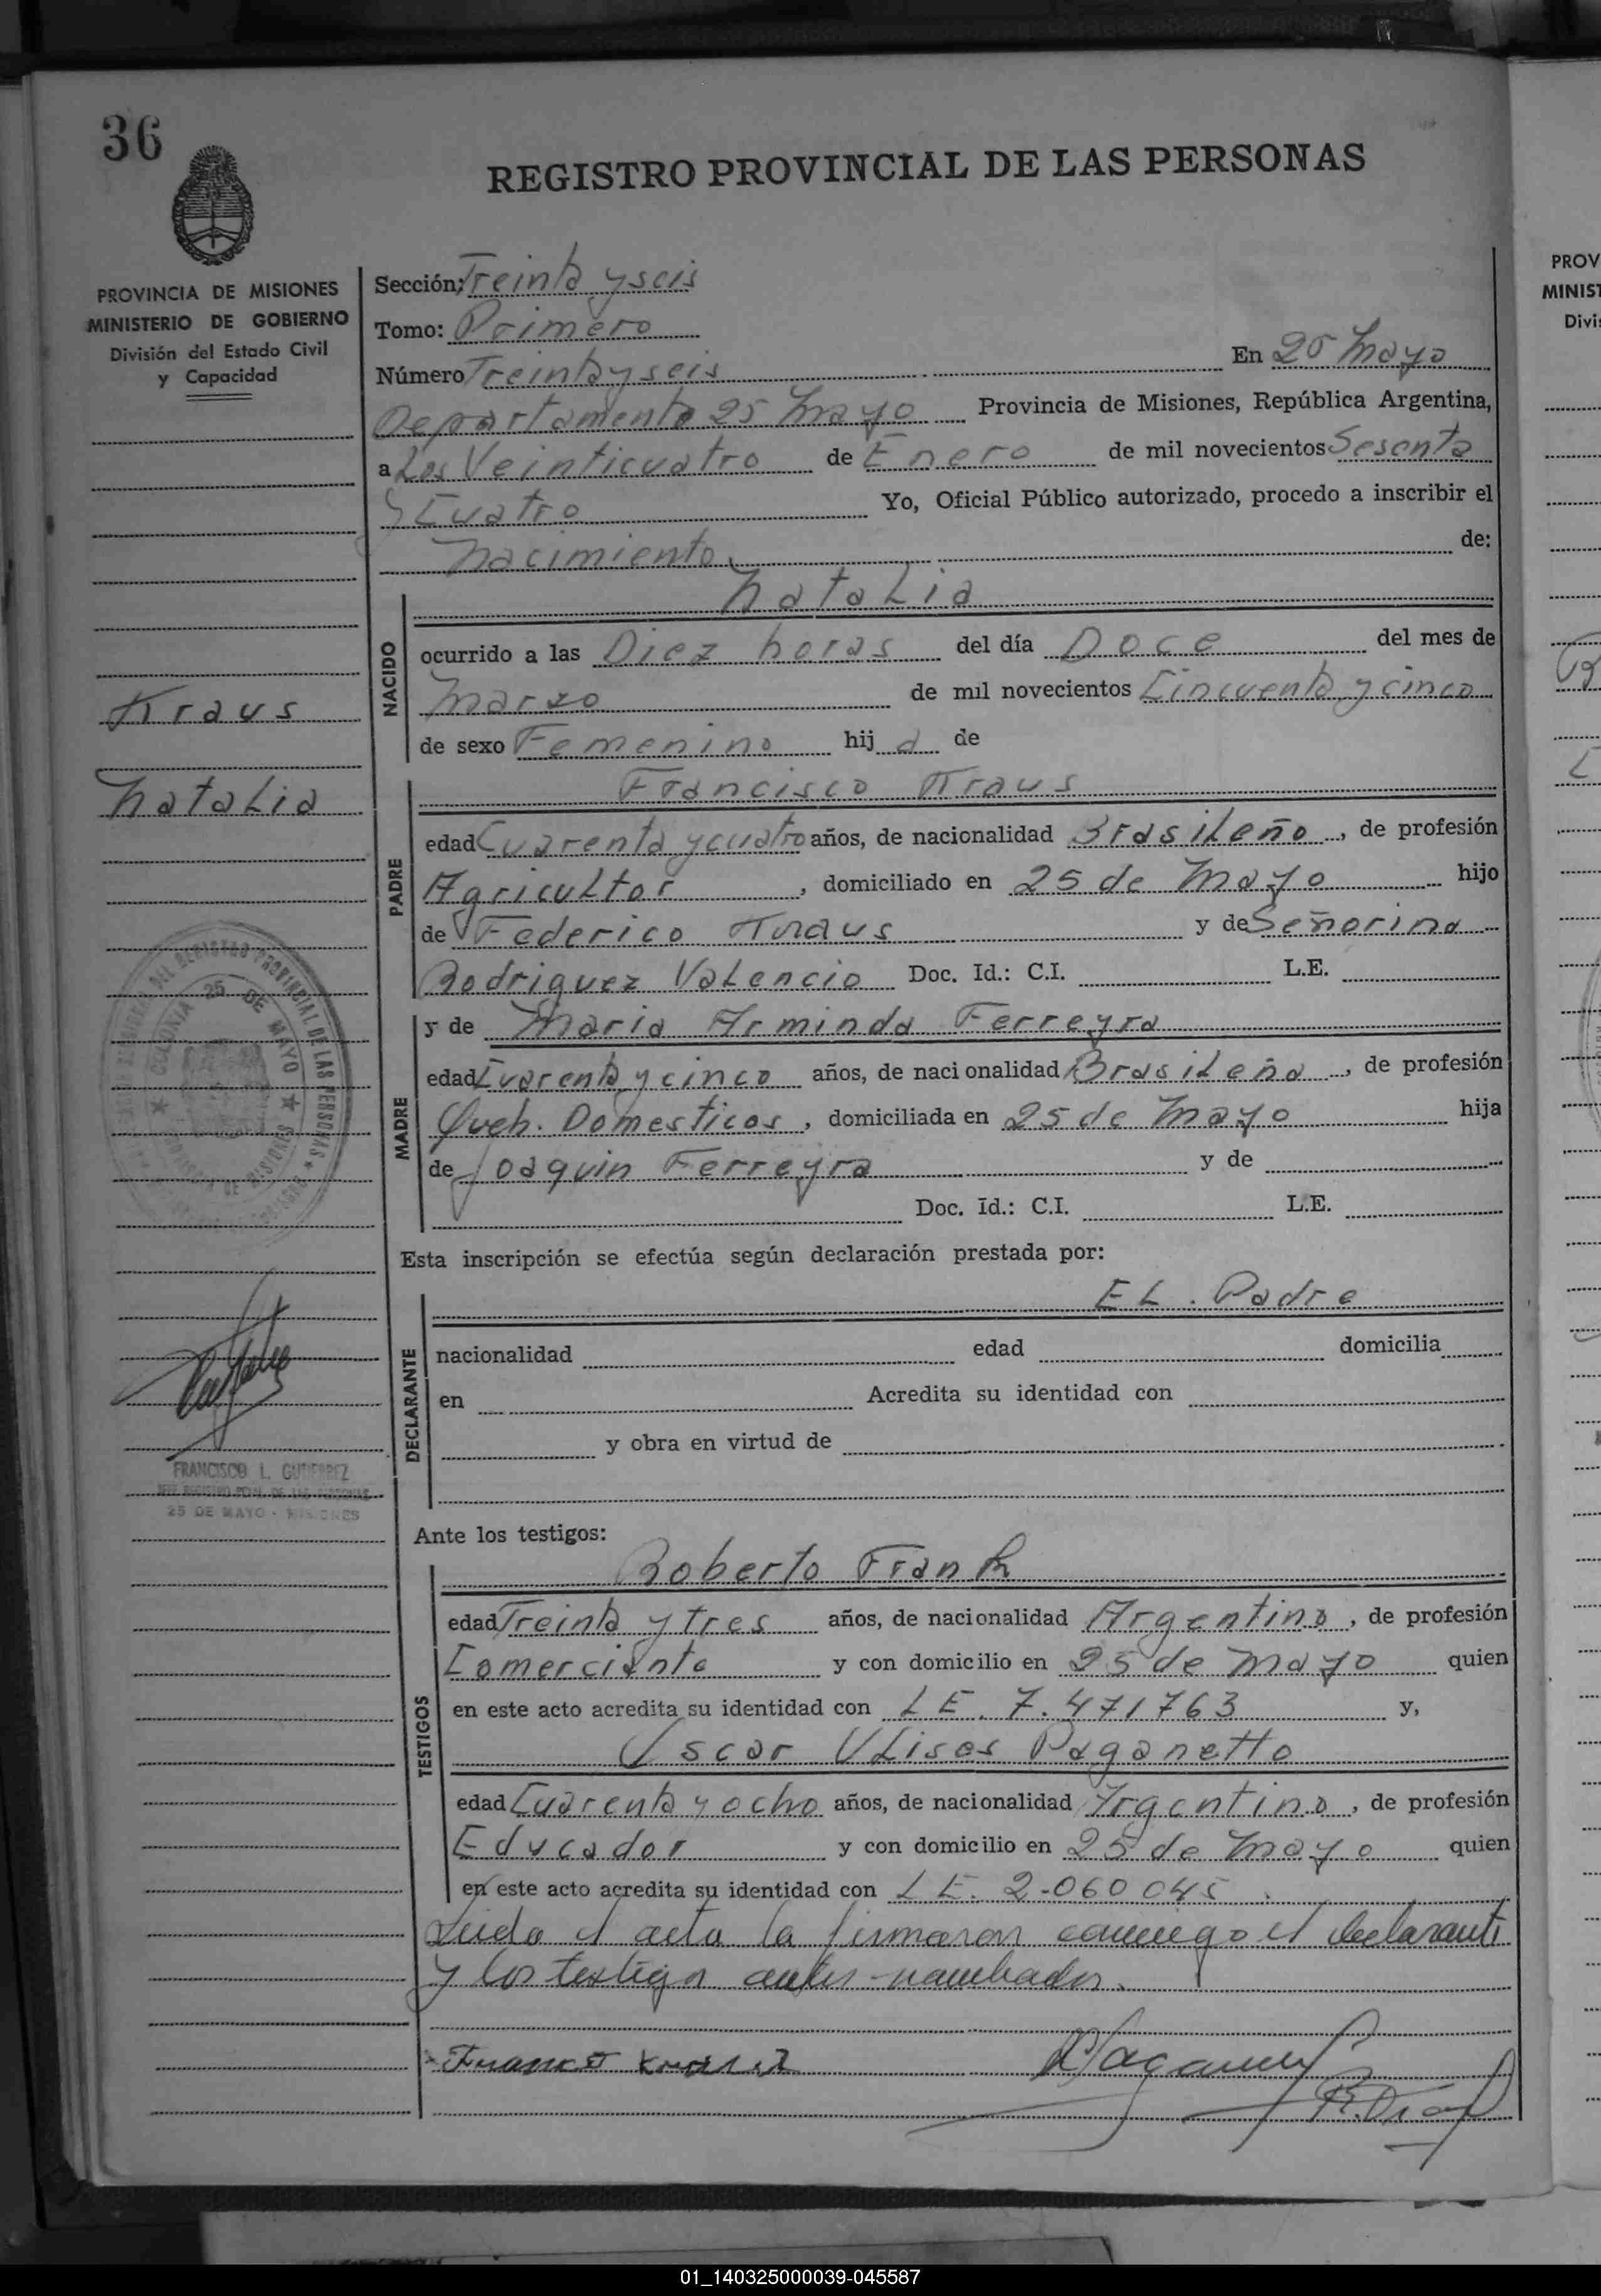 36
REGISTRO PROVINCIAL DE LAS PERSONAS
PROVINCIA DE MISIONES
MINISTERIO DE GOBIERNO
División del Estado Civil
y Capacidad
Kraus
Natalia
COLONIA 25 DE MAYO
FRANCISCO L. GUTIERREZ
25 DE MAYO - MISIONES
Sección: Treinta y seis
Tomo: Primero
Número Treinta y seis En 25 Mayo
Departamento 25 Mayo Provincia de Misiones, República Argentina,
a Los Veinticuatro de Enero de mil novecientos Sesenta
y Cuatro Yo, Oficial Público autorizado, procedo a inscribir el
Nacimiento de:
NACIDO
Natalia
ocurrido a las Diez horas del día Doce del mes de
Marzo de mil novecientos Cincuenta y cinco
de sexo Femenino hija de
PADRE
Francisco Kraus
edad Cuarenta y cuatro años, de nacionalidad Brasileño, de profesión
Agricultor, domiciliado en 25 de Mayo hijo
de Federico Kraus y de Señorina
Rodriguez Valencio Doc. Id.: C.I. L.E.
MADRE
y de Maria Arminda Ferreyra
edad Cuarenta y cinco años, de nacionalidad Brasileña, de profesión
Queh. Domesticos, domiciliada en 25 de Mayo hija
de Joaquin Ferreyra y de
Doc. Id.: C.I. L.E.
Esta inscripción se efectúa según declaración prestada por:
DECLARANTE
EL. Padre
nacionalidad edad domicilia
en Acredita su identidad con
y obra en virtud de
Ante los testigos:
TESTIGOS
Roberto Frank
edad Treinta y tres años, de nacionalidad Argentino, de profesión
Comerciante y con domicilio en 25 de Mayo quien
en este acto acredita su identidad con L E. 7.471763 y,
Oscar ULises Paganetto
edad Cuarenta y ocho años, de nacionalidad Argentino, de profesión
Educador y con domicilio en 25 de Mayo quien
en este acto acredita su identidad con L E. 2-060045.
Leida el acta la firmaron conmigo el declarante
y los testigos antes nombrados.
PROV
MINIST
Divi
01_140325000039-045587